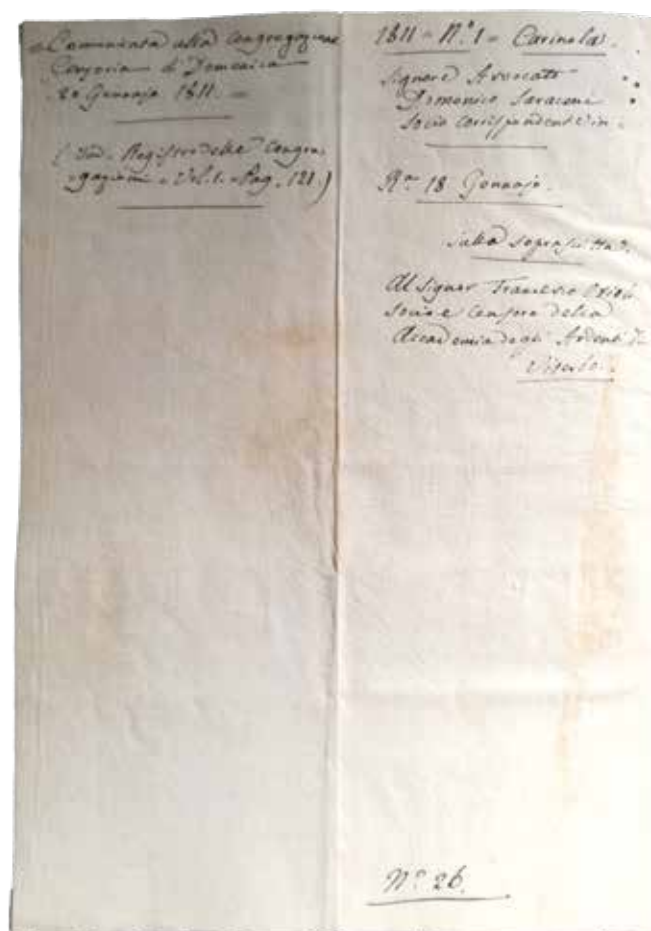 = Comunicata alla Congregazione
Censoria di Domenica
20 Gennajo 1811. =
(Ved. Registro delle Congre-
-gazioni = Vol. 1. = Pag. 121.)
1811 = N.º 1 = Carinola.
Signore Avvocato
Domenico Saraceni
Socio corrispondente in
R.ta 18 Gennajo.
Sulla soprascritta.
Al Signor Francesco Orioli
Socio e Censore della
Accademia degli Ardenti di
Viterbo.
N.º 26.